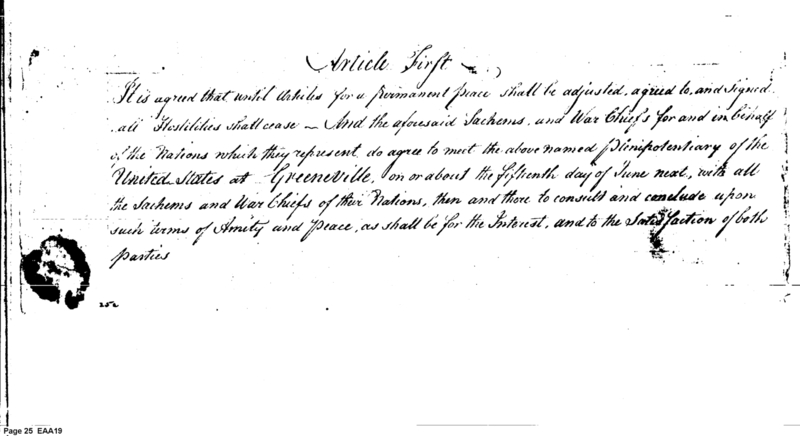 Article First
It is agreed that until Articles for a permanent peace shall be adjusted, agreed to, and signed
all Hostilities shall cease – And the aforesaid Sachems, and War Chiefs for and in behalf
of the Nations which they represent do agree to meet the above named Plenipotentiary of the
United States at Greeneville, on or about the fifteenth day of June next, with all
the Sachems and War Chiefs of their Nations, then and there to consult and conclude upon
such terms of Amity and Peace, as shall be for the Interest, and to the Satisfaction of both
parties
252
Page 25 EAA19